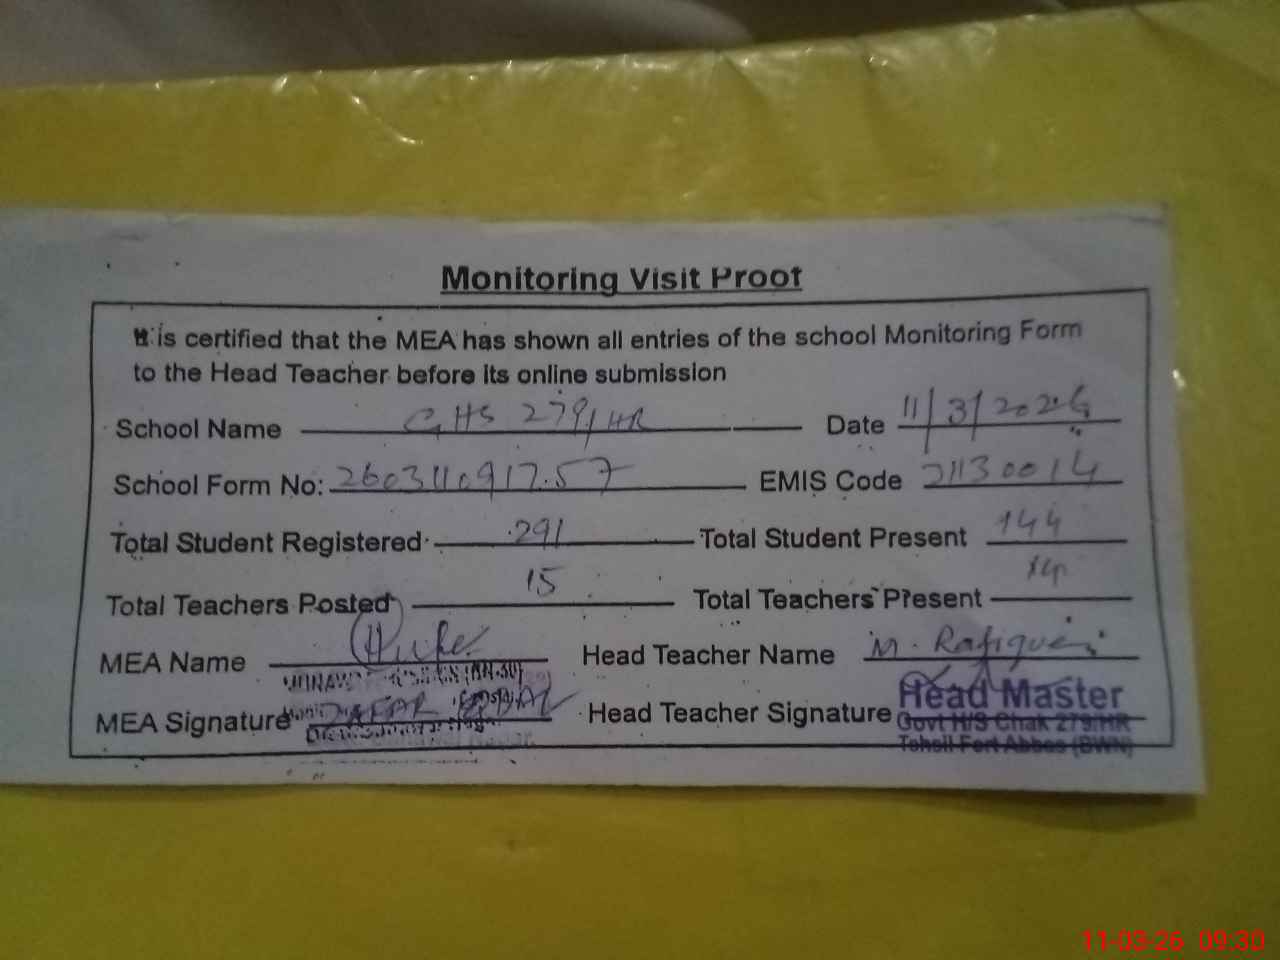 Monitoring Visit Proof
It is certified that the MEA has shown all entries of the school Monitoring Form
to the Head Teacher before its online submission
School Name GHS 279/HR Date 11/3/2026
School Form No: 260311091757 EMIS Code 31130014
Total Student Registered 291 Total Student Present 144
Total Teachers Posted 15 Total Teachers Present 14
MEA Name Head Teacher Name M. Rafique
MEA Signature ZAFAR IQBAL Head Teacher Signature
Head Master
Govt H/S Chak 279/HR
Tehsil Fort Abbas (BWN)
11-03-26 09:30